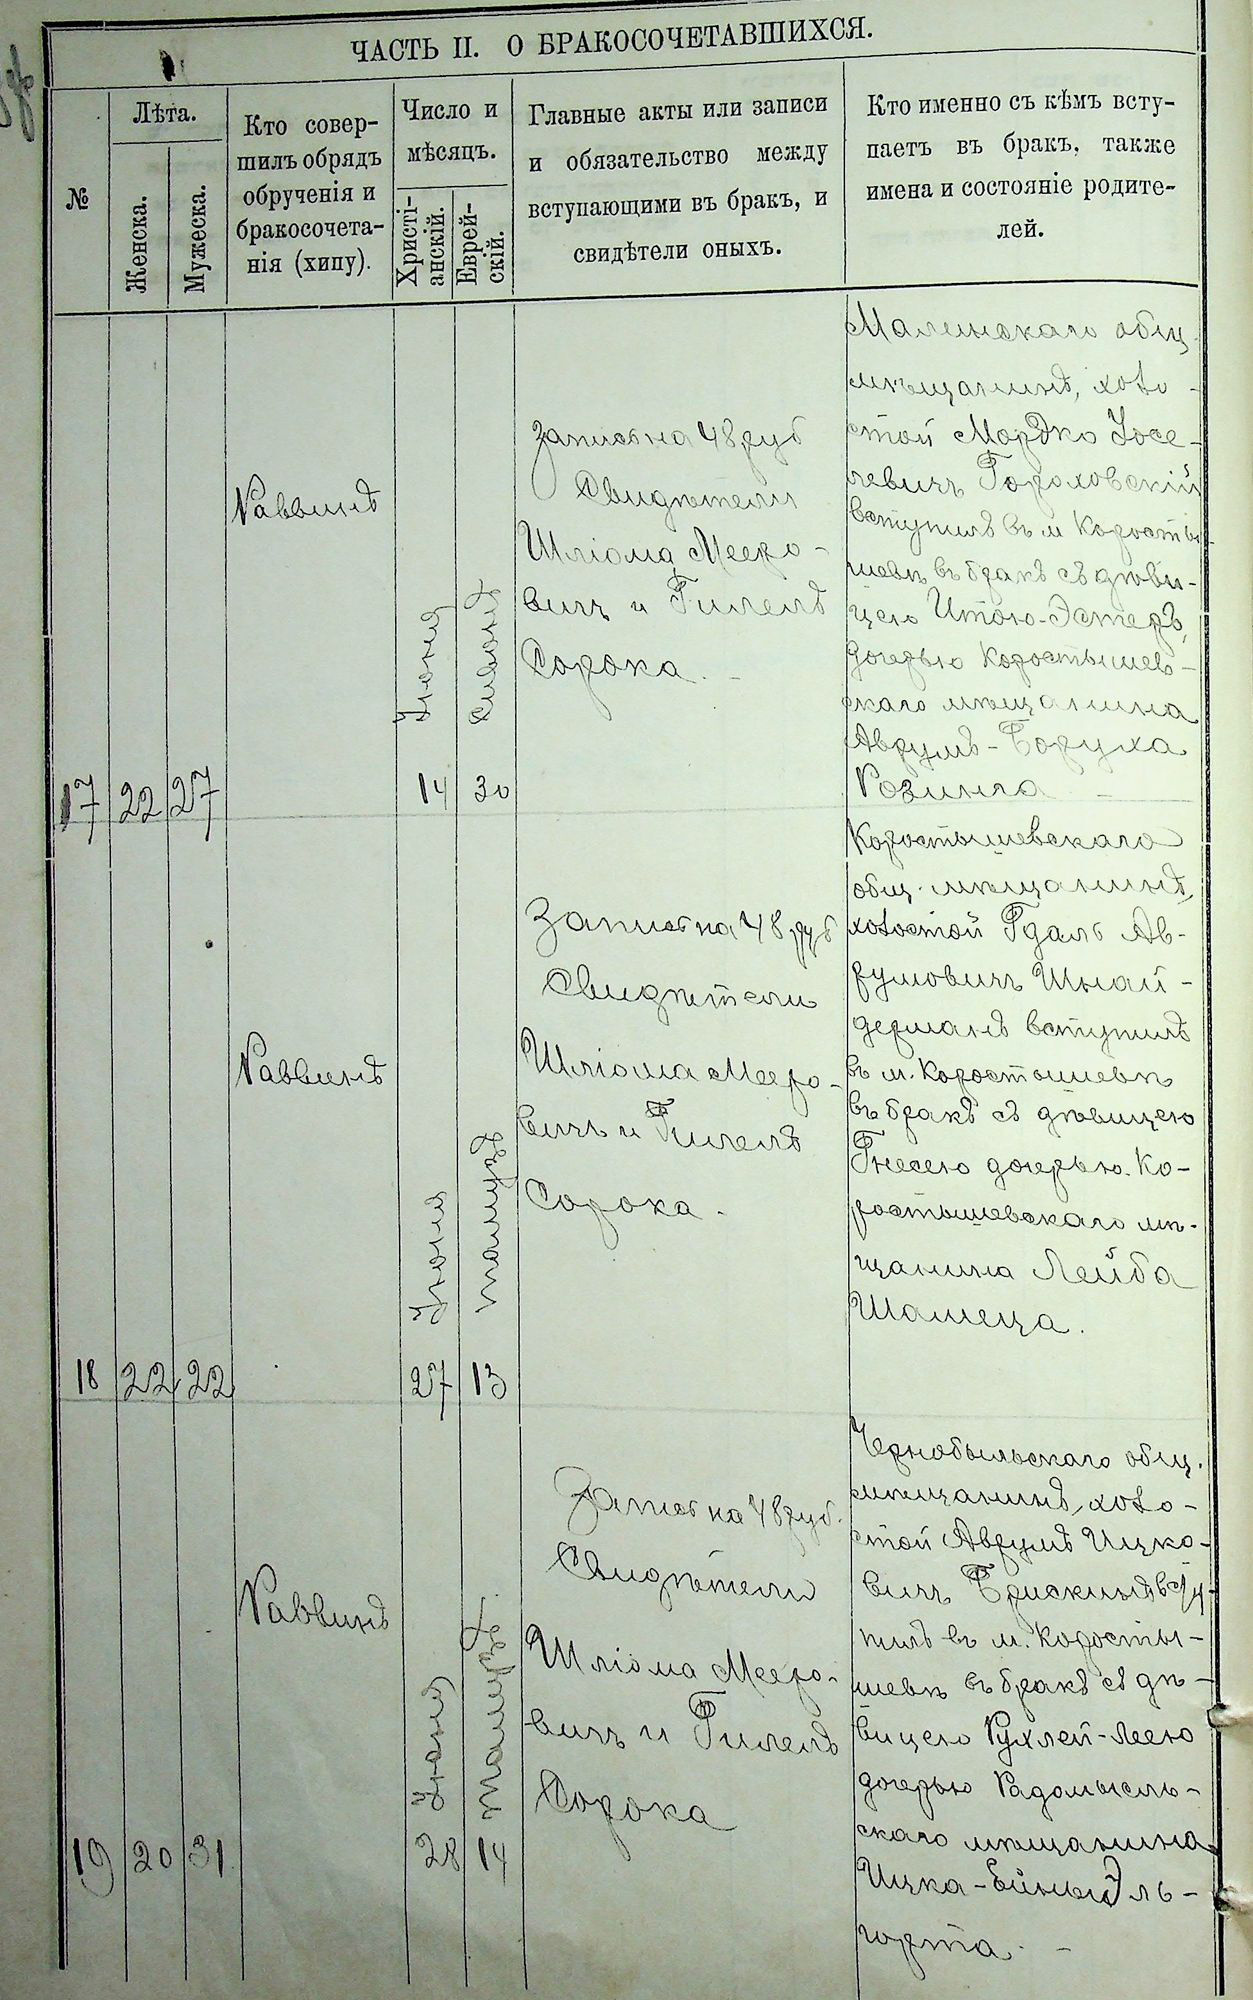 ЧАСТЬ II. О БРАКОСОЧЕТАВШИХСЯ.
№
Лѣта.
Женска.
Мужеска.
Кто совер-
шилъ обрядъ
обрученія и
бракосочета-
нія (хипу).
Число и
мѣсяцъ.
Христі-
анскій.
Еврей-
скій.
Главные акты или записи
и обязательство между
вступающими въ бракъ, и
свидѣтели оныхъ.
Кто именно съ кѣмъ всту-
паетъ въ бракъ, также
имена и состояніе родите-
лей.
17
22
27
Раввинъ
Іюня
14
Сивонъ
30
Запись на 48 руб
Свидѣтели
Шліома Мееро-
вичъ и Гилелъ
Сорока.
Малинскаго общ.
мѣщанинъ, холо-
стой Мордко Іосе-
левичъ Гороховскій
вступилъ въ м Коросты-
шевѣ въ бракъ съ дѣви-
цею Итою-Эстеръ,
дочерью Коростышев-
скаго мѣщанина
Аврумъ-Боруха
Розинга
18
22
22
Раввинъ
Іюня
27
Тамузъ
13
Запись на 48 руб
Свидѣтели
Шліома Мееро-
вичъ и Гилелъ
Сорока.
Коростышевскаго
общ. мѣщанинъ,
холостой Гдаль Ав-
румовичъ Шнай-
дерманъ вступилъ
въ м. Коростышевѣ
въ бракъ съ дѣвицею
Гнесею дочерью Ко-
ростышевскаго мѣ-
щанина Лейба
Шамеца.
19
20
31
Раввинъ
Іюня
28
Тамузъ
14
Запись на 48 руб.
Свидѣтели
Шліома Мееро-
вичъ и Гилелъ
Сорока
Чернобыльскаго общ.
мѣщанинъ, холо-
стой Аврумъ Ицко-
вичъ Брискинъ всту-
пилъ въ м. Коросты-
шевѣ въ бракъ съ дѣ-
вицею Рухлей-Леею
дочерью Радомысль-
скаго мѣщанина
Ицка-